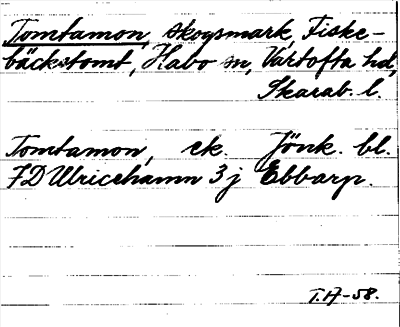 Tomtamon, skogsmark, Fiske-
bäckstomt, Habo sn, Vartofta hd,
Skarab. l.
Tomtamon, ek. Jönk. bl.
FD Ulricehamn 3 j Ebbarp.
T.H-58.